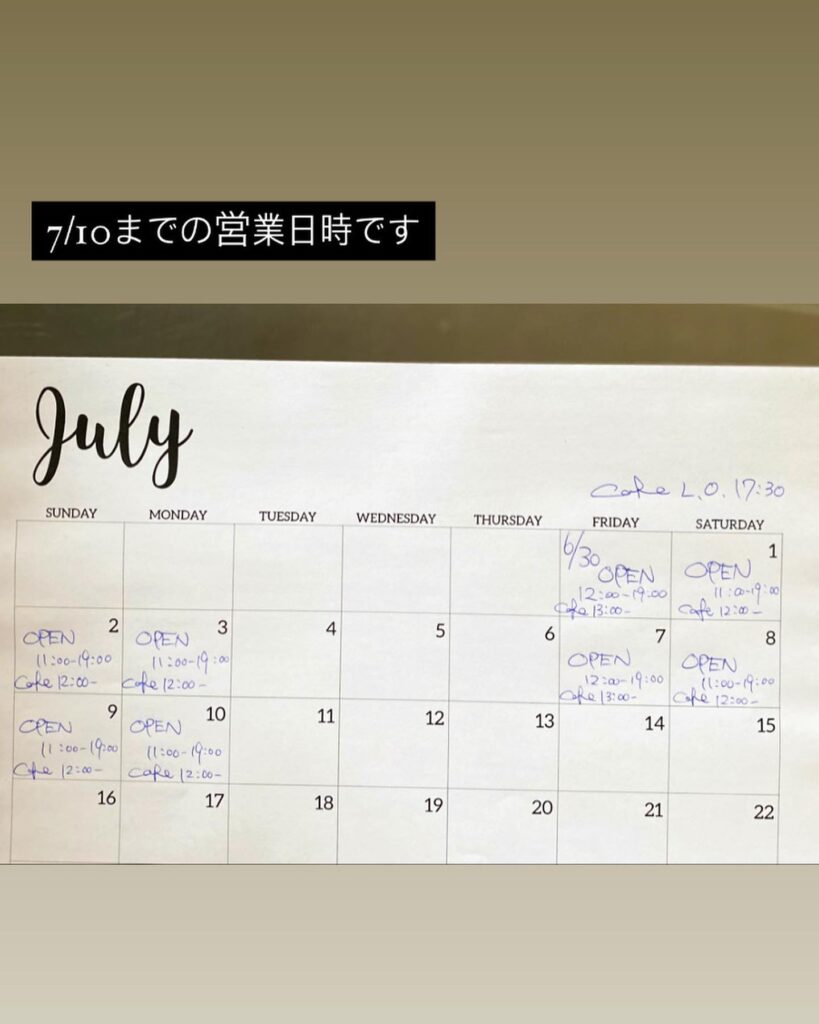 7/10までの営業日時です
July
Cafe L.O. 17:30
SUNDAY MONDAY TUESDAY WEDNESDAY THURSDAY FRIDAY SATURDAY
6/30
OPEN
12:00-19:00
Cafe 13:00-
1
OPEN
11:00-19:00
Cafe 12:00-
2
OPEN
11:00-19:00
Cafe 12:00-
3
OPEN
11:00-19:00
Cafe 12:00-
4
5
6
7
OPEN
12:00-19:00
Cafe 13:00-
8
OPEN
11:00-19:00
Cafe 12:00-
9
OPEN
11:00-19:00
Cafe 12:00-
10
OPEN
11:00-19:00
Cafe 12:00-
11
12
13
14
15
16
17
18
19
20
21
22